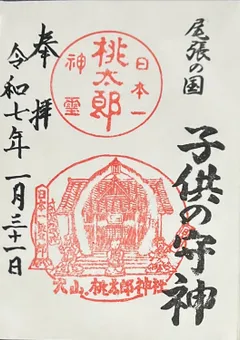 尾張の国
子供の守神
日本一
桃太郎
神霊
犬山。桃太郎神社
日本一
奉拝
令和七年一月三十一日